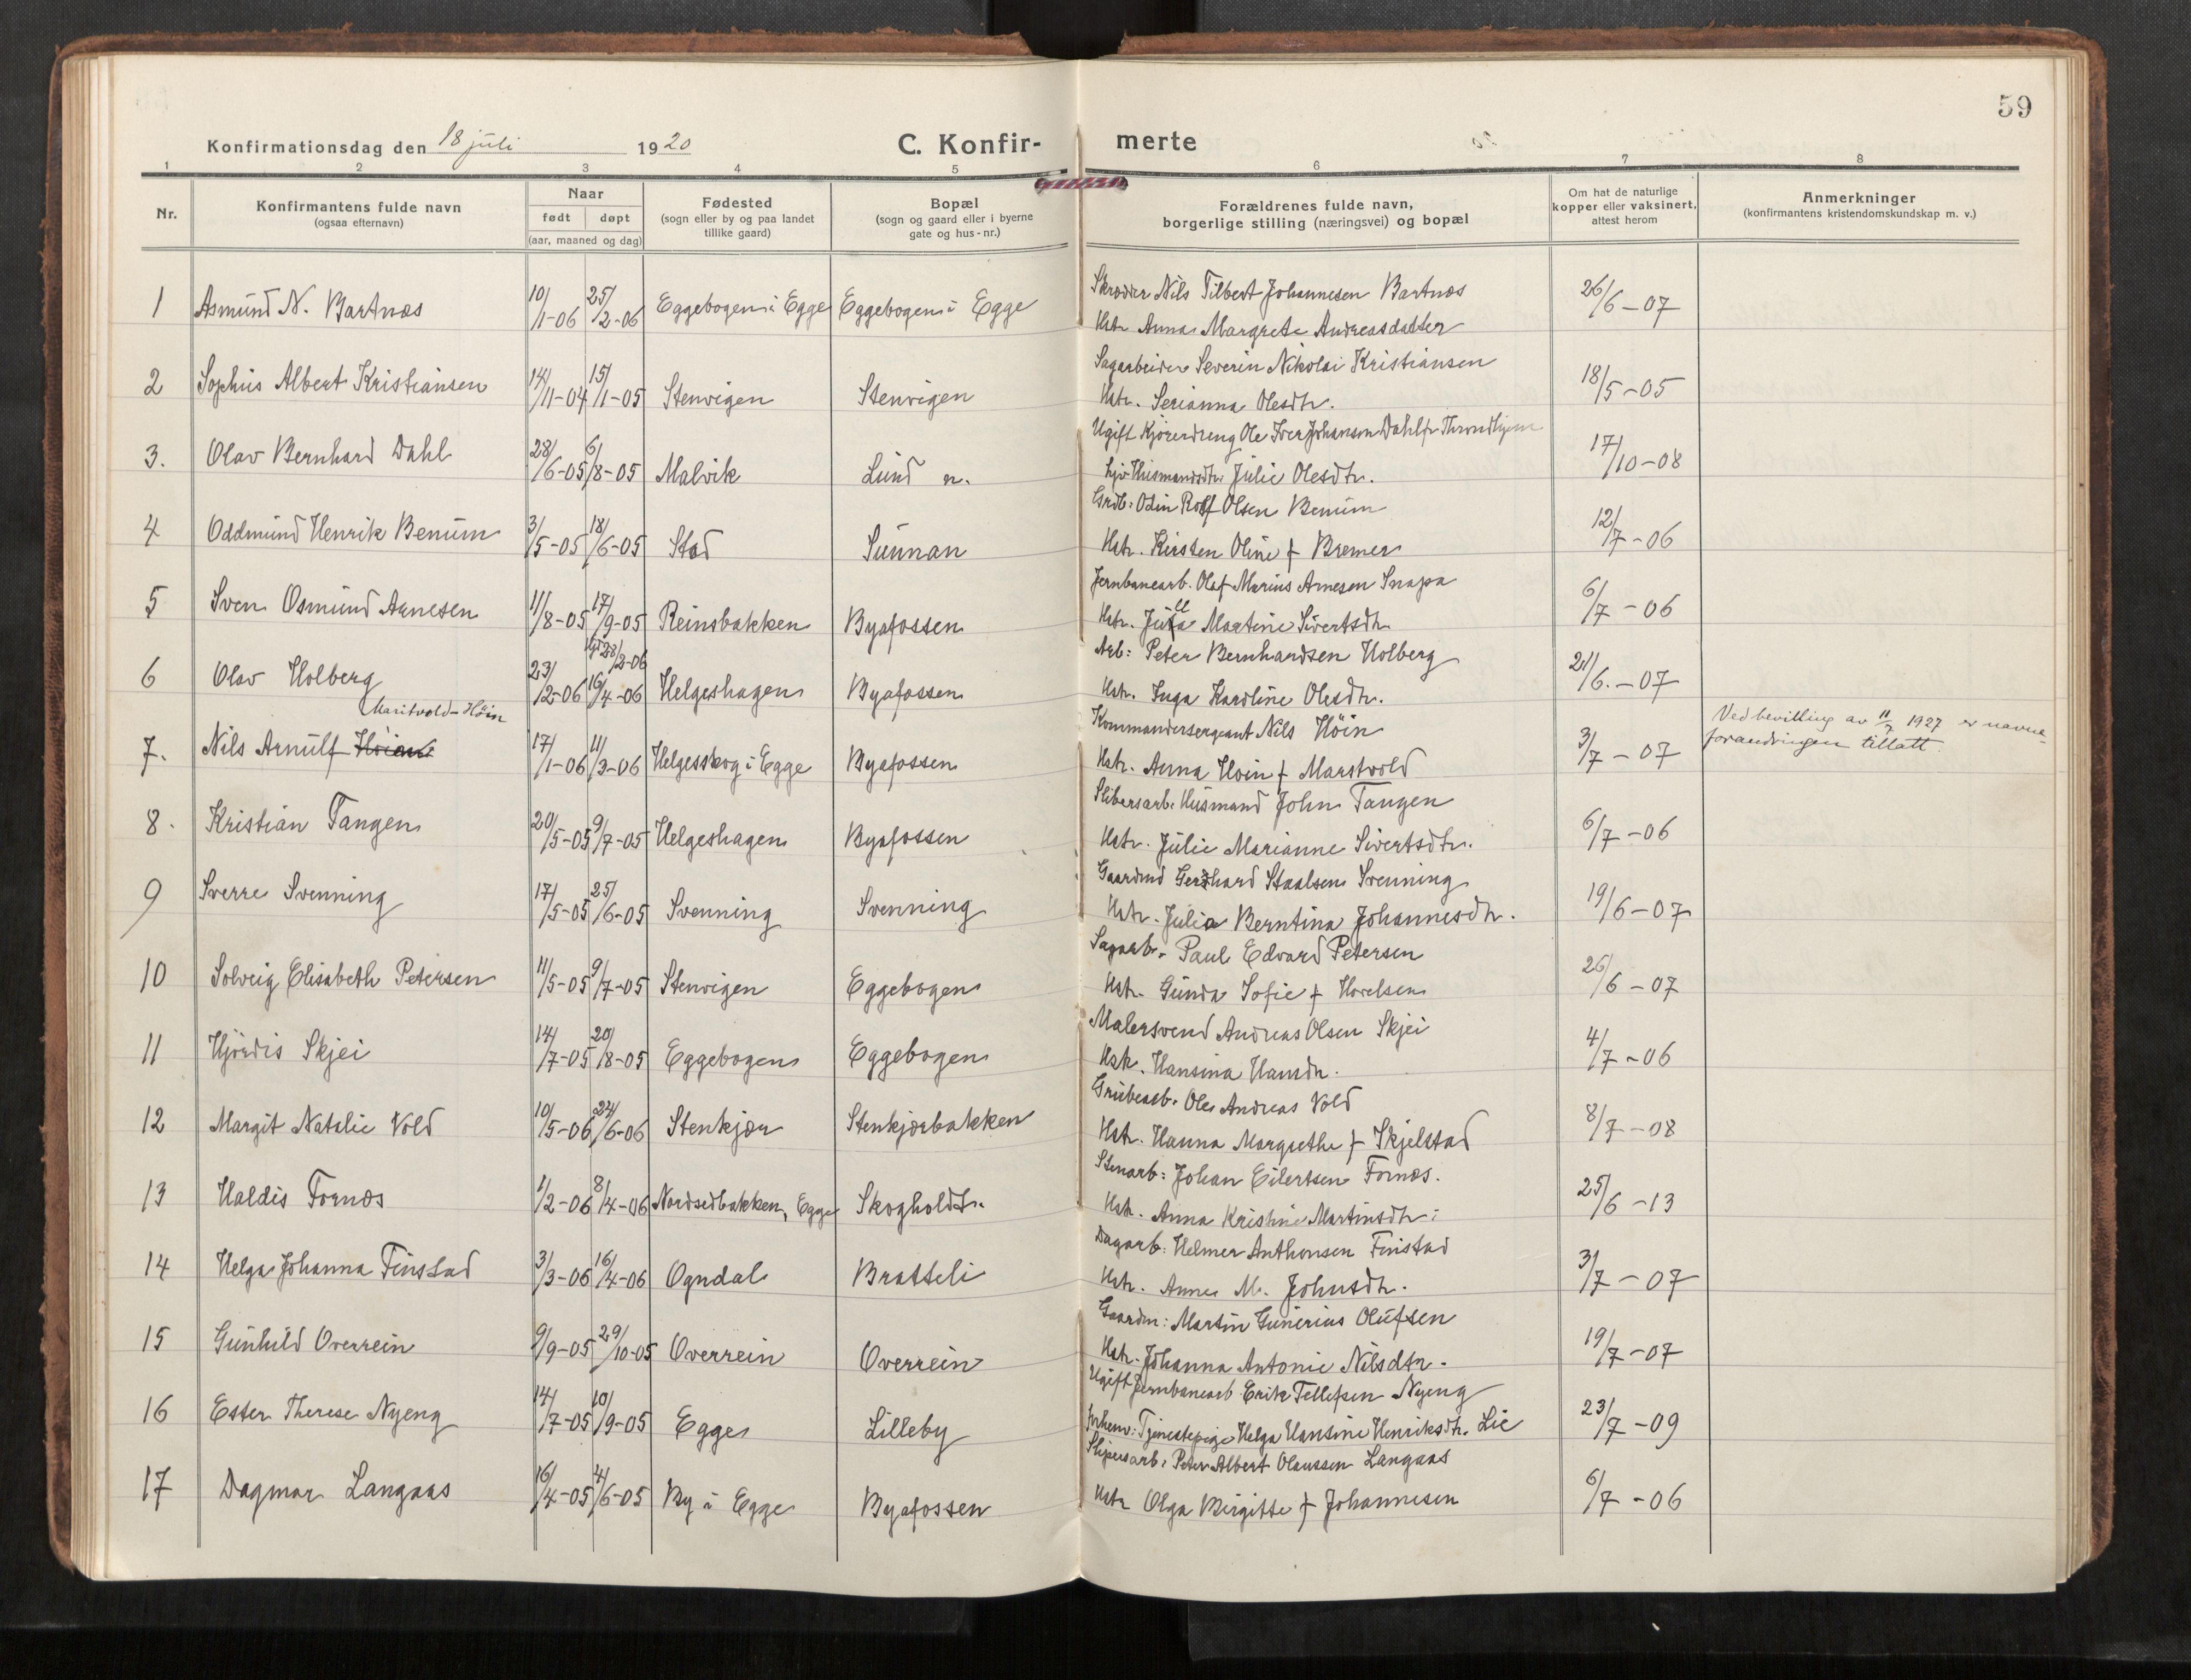 59
Konfirmationsdag den 18 juli 1920 C. Konfir- merte
1 2 3 4 5 6 7 8
Nr.
Konfirmantens fulde navn
(ogsaa efternavn)
Naar
født døpt
(aar, maaned og dag)
Fødested
(sogn eller by og paa landet
tillike gaard)
Bopæl
(sogn og gaard eller i byerne
gate og hus-nr.)
Forældrenes fulde navn,
borgerlige stilling (næringsvei) og bopæl
Om hat de naturlige
kopper eller vaksinert,
attest herom
Anmerkninger
(konfirmantens kristendomskundskap m. v.)
1 Asmund N. Bartnæs 10/1-06 25/2-06 Eggebogen i Egge Eggebogen i Egge Skræder Nils Tilbert Johannesen Bartnæs 26/6-07
Hstr. Anna Margrete Andreasdatter
2 Sophus Albert Kristiansen 14/11-04 15/1-05 Stenvigen Stenvigen Sagarbeider Severin Nikolai Kristiansen 18/5-05
Hstr. Serianna Olesdtr.
3. Olav Bernhard Dahl 28/6-05 6/8-05 Malvik Lund n. Ugift Kjøredreng Ole Iver Johansen Dahl fr. Throndhjem 17/10-08
Husmandsdtr. Julie Olesdtr.
4 Oddmund Henrik Benum 3/5-05 18/6-05 Stod Sunnan Grdb: Odin Rolf Olsen Benum 12/7-06
Hstr. Kirsten Oline f. Bremer
5 Sven Osmund Arnesen 11/8-05 17/9-05 Reinsbakken Byafossen Jernbanearb. Olaf Marius Arnesen Snapa 6/7-06
Hstr. Julla Martine Sivertsdtr.
6 Olav Holberg 23/2-06 28/2-06 16/4-06 Helgeshagen Byafossen Arb: Peter Bernhardsen Holberg 21/6-07
Hstr. Inga Karoline Olesdtr.
Maritvold-Höin
7. Nils Arnulf Höian 17/1-06 11/3-06 Helgesskog i Egge Byafossen Kommandersergeant Nils Höin 3/7-07 Ved bevilling av 11/7 1927 er navne-
forandringen tillatt.
Hstr. Anna Hoin f. Marstvold
8. Kristian Tangen 20/5-05 9/7-05 Helgeshagen Byafossen Slibersarb. Husmand John Tangen 6/7-06
Hstr. Julie Marianne Sivertsdtr.
9 Sverre Svenning 17/5-05 25/6-05 Svenning Svenning Gaardmd Gerhard Staalsen Svenning 19/6-07
Hstr. Julia Berntina Johannesdtr.
10 Solveig Elisabeth Petersen 11/5-05 9/7-05 Stenvigen Eggebogen Sagarb. Paul Edvard Petersen 26/6-07
Hstr. Gunda Sofie f. Hovelsen
11 Hjördis Skjei 14/7-05 20/8-05 Eggebogen Eggebogen Malersvend Andreas Olsen Skjei 4/7-06
Hstr. Hansina Hansdtr.
12 Margit Natalie Vold 10/5-06 24/6-06 Stenkjær Stenkjærbakken Grubearb. Ole Andreas Vold 8/7-08
Hstr. Hanna Margrethe f. Skjelstad
13 Haldis Fornæs 1/2-06 8/4-06 Nordsedbakken, Egge Skogholdt. Stenarb: Johan Eilertsen Fornæs. 25/6-13
Hstr. Anna Kristine Martinsdtr:
14 Helga Johanna Finstad 3/3-06 16/4-06 Ogndal Bratteli Dagarb: Helmer Anthonsen Finstad 3/7-07
Hstr. Anne M. Johnsdtr.
15 Gunhild Overrein 9/9-05 29/10-05 Overrein Overrein Gaardm: Martin Gunerius Olufsen 19/7-07
Hstr. Johanna Antonie Nilsdtr.
16 Ester Therese Nyeng 14/7-05 10/9-05 Egge Lilleby Ugift Jernbanearb Erik Tellefsen Nyeng 23/7-09
forhenv: Tjenestepige Helga Hansine Henriksdtr. Lie
17 Dagmar Langaas 16/4-05 4/6-05 By i Egge Byafossen Slipersarb: Peter Albert Olaussen Langaas 6/7-06
Hstr Olga Birgitte f. Johannesen